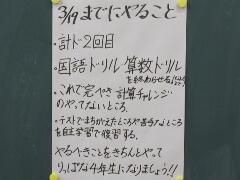 3/19までにやること
・計ド2回目
・国語ドリル 算数ドリル
を終わらせる
・これで完ぺき計算チャレンジ
のやってないところ.
・テストでまちがえたところや苦手なところ
を自主学習で復習する.
やるべきことをきちんとやって
りっぱな4年生になりましょう!!